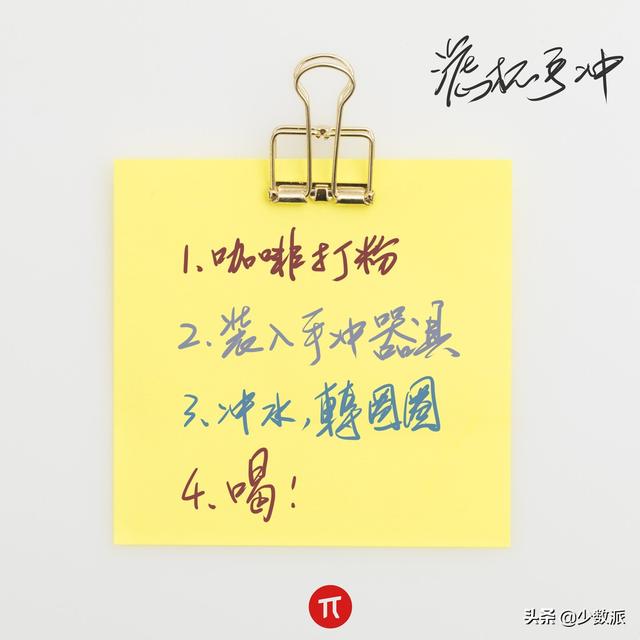 杯手冲
1、咖啡打粉
2、装入手冲器具
3、冲水，轉圈圈
4、喝！
π
头条 @少数派